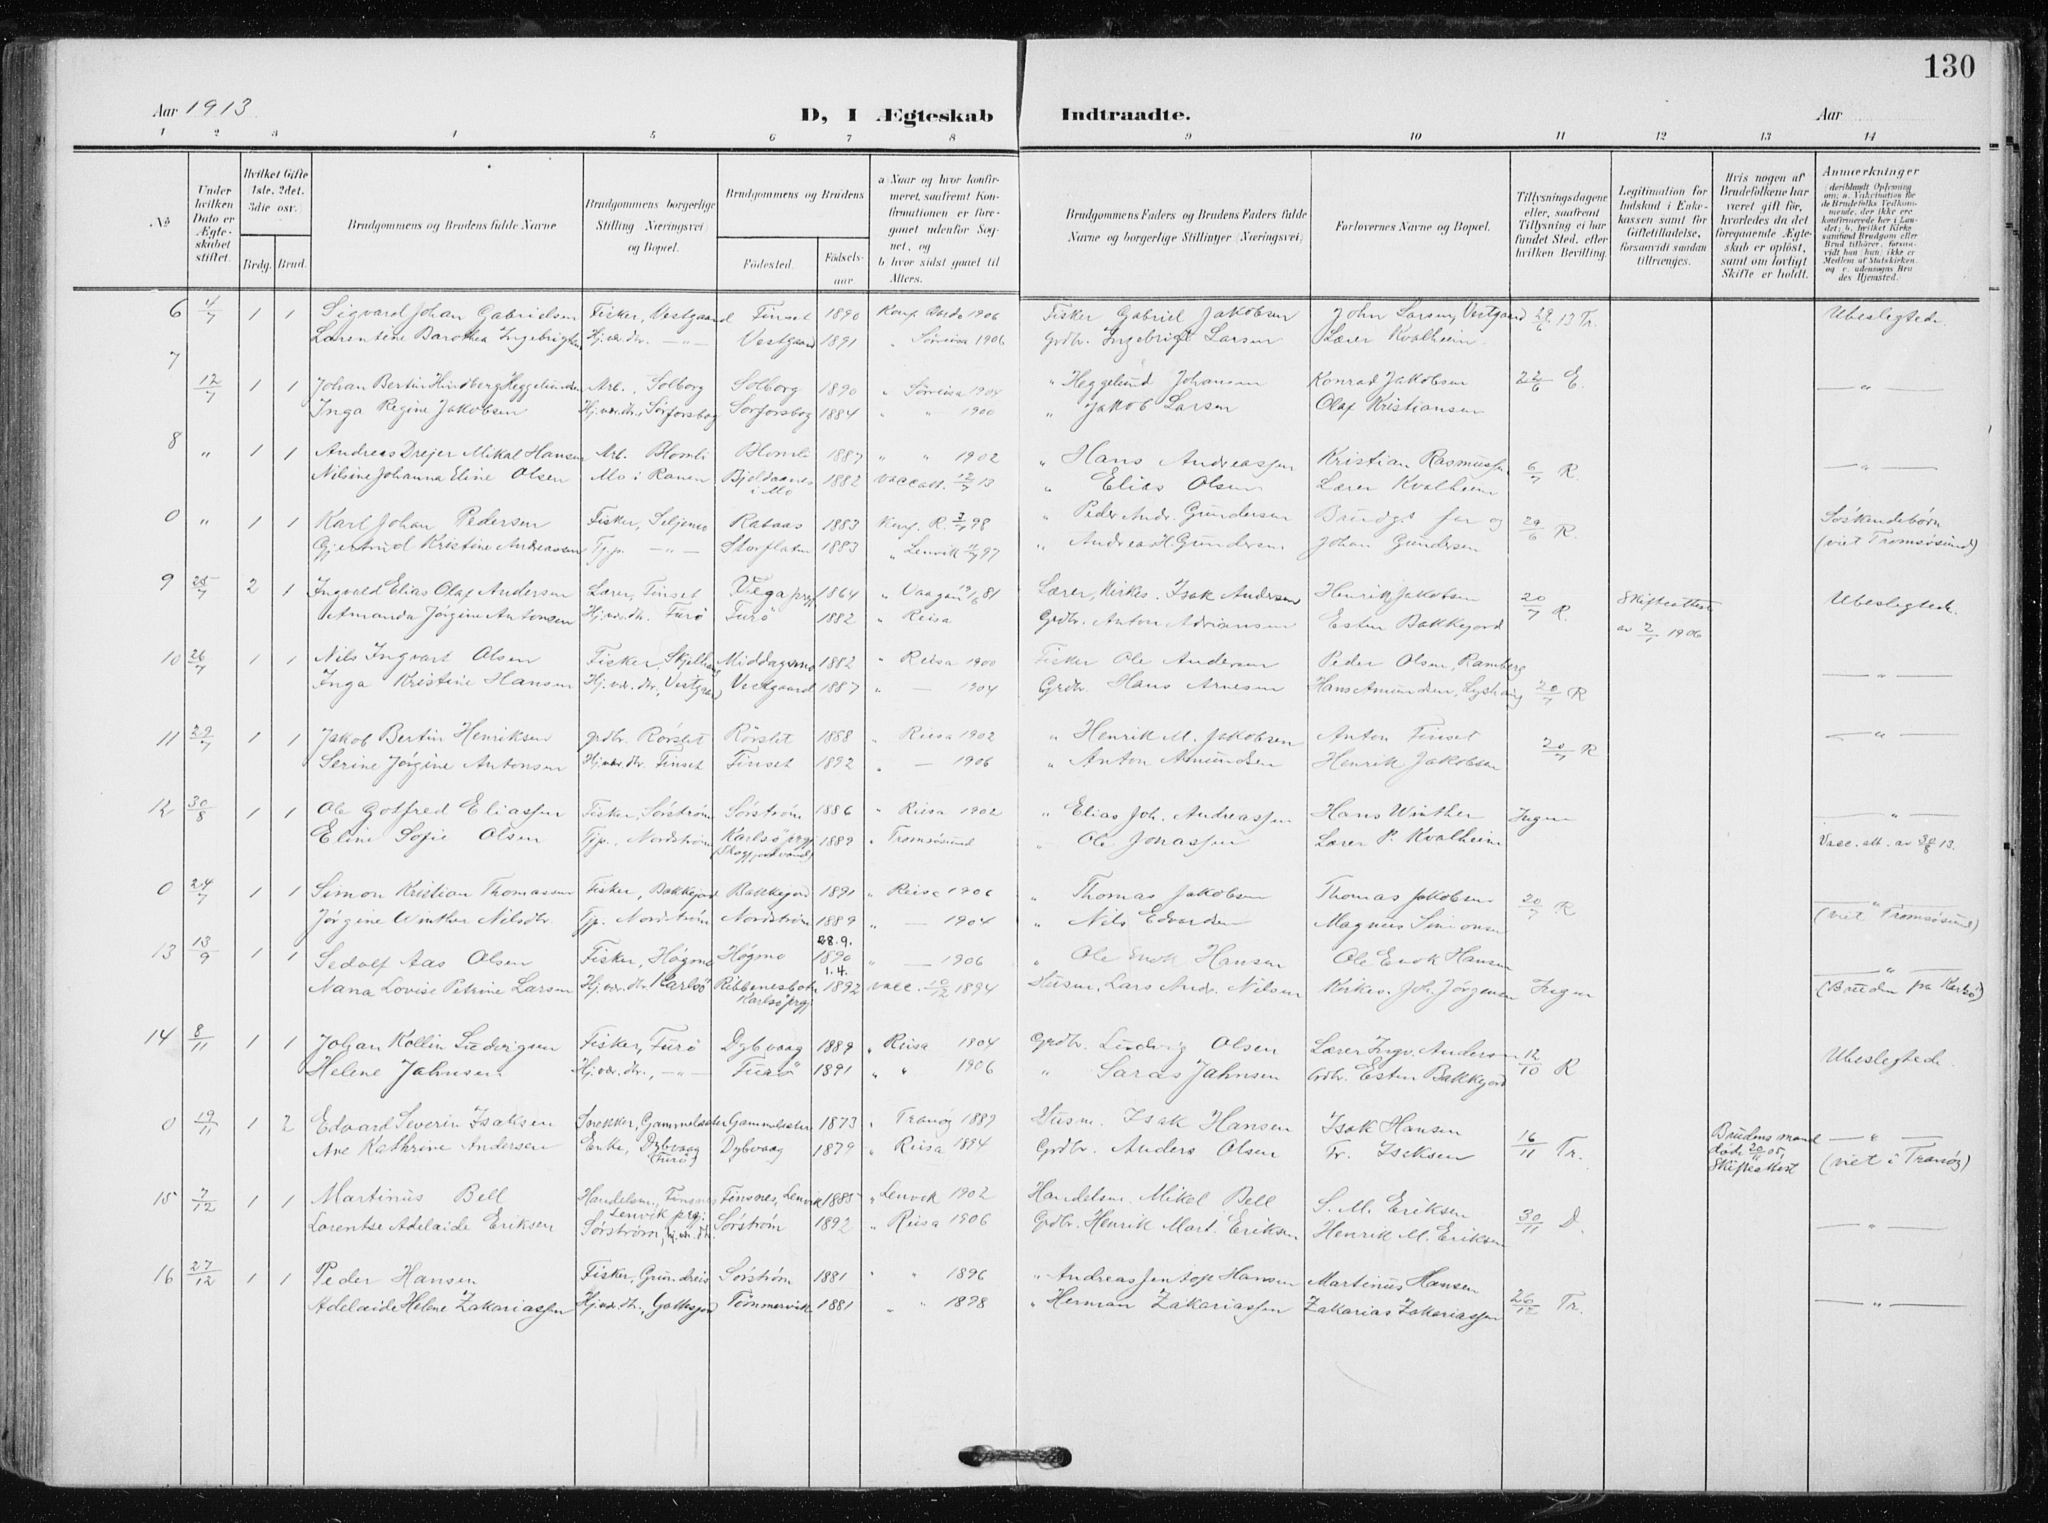 130
Aar 1913.
D, I Ægteskab Indtraadte.
Aar
1 2 3 4 5 6 7 8 9 10 11 12 13 14
No
Under hvilken Dato er Ægteskabet stiftet.
Hvilket Gifte 1ste. 2det. 3die osv.
Brdg. Brud.
Brudgommens og Brudens fulde Navne
Brudgommens borgerlige Stilling (Næringsvei) og Bopæl.
Brudgommens og Brudens
Fødested. Fødselsaar.
a) Naar og hvor konfirmeret, saafremt Konfirmationen er foregaaet udenfor Sognet, og
b) hvor sidst gaaet til Alters.
Brudgommens Faders og Brudens Faders fulde Navne og borgerlige Stillinger (Næringsvei)
Forlovernes Navne og Bopæl.
Tillysningsdagene eller, saafremt Tillysning ei har fundet Sted, efter hvilken Bevilling.
Legitimation for Indskud i Enkekassen samt for Giftetilladelse, forsaavidt saadan tiltrænges.
Hvis nogen af Brudefolkene har været gift før, hvorledes da det foregaaende Ægteskab er opløst, samt om lovligt Skifte er holdt.
Anmerkninger
6 4/7 1 1 Sigvard Johan Gabrielsen Fisker, Vestgaard Finset 1890 Konf. Bardo 1906 Fisker Gabriel Jakobsen John Larsen, Vestgaard 29/6 13 Tr. Ubeslegtede
Larentine Barothea Ingebrigtsen Hj.vær. dtr. —"— Vestgaard 1891 " Sørreisa 1906 Grdbr. Ingebrigt Larsen Lærer Kvalheim.
7 12/7 1 1 Johan Bertin Hindberg Heggelundsen Arb., Solborg Solborg 1890 " Sørreisa 1904 " Heggelund Johansen Konrad Jakobsen 22/6 E. —"—
Inga Regine Jakobsen Hj.vær. dtr. Sørforsbog Sørforsbog 1884 " " 1900 " Jakob Larsen Olaf Kristiansen
8 " 1 1 Andreas Drejer Mikal Hansen Arb. Blomli Blomli 1887 " " 1902 " Hans Andreassen Kristian Rasmussen 6/7 R. —"—
Nilsine Johanna Eline Olsen Mo i Ranen Bjeldaanes i Mo 1882 vaccatt. 12/7 13 " Elias Olsen Lærer Kvalheim
0 " 1 1 Karl Johan Pedersen Fisker, Seljemo Rabaas 1883 Konf. R. 3/7 98 " Peder Andr. Gundersen Brudgs far og 29/6 R. Söskendebörn
Gjertrud Kristine Andreassen Tj.p. —"— Storflaten 1883 " Lenvik 97 " Andreas H. Gundersen Johan Gundersen (viet Tromsösund)
9 25/7 2 1 Ingvald Elias Olaf Andersen Lærer, Finset Vega prgj 1864 " Vaagan 81 Lærer, Kirkes. Isak Andersen Henrik Jakobsen 20/7 R. Skifteattest av 2/1 1906 Ubeslegtede.
Amanda Jørgine Antonsen Hj.vær. dtr. Furö Furö 1882 " Reisa Grdbr. Anton Adriansen Esten Bakkejord
10 26/7 1 1 Nils Ingvart Olsen Fisker, Middagsmo 1882 " Reisa 1900 Fisker Ole Andersen Peder Olsen, Ramberg
Inga Kristine Hansen Hj.vær. dtr, Vestgaard Vestgaard 1887 " — 1904 Grdbr. Hans Arnesen Hans Amundsen, Lyshaug 20/7 R —"—
11 29/7 1 1 Jakob Bertin Henriksen grdbr. Rörslet Rörslet 1888 " Reisa 1902 " Henrik M. Jakobsen Anton Finset 20/7 R —"—
Serine Jørgine Antonsen Hj.vær. dtr. Finset Finset 1892 " — 1906 " Anton Amundsen Henrik Jakobsen
12 30/8 1 1 Ole Gotfred Eliassen Fisker, Sörström Sörström 1886 " Reisa 1902 " Elias Joh. Andreassen Hans Winther Ingen —"—
Eline Sofie Olsen Tj.p., Nordström Karlsö prgj 1889 " Tromsösund " Ole Jonassen Lærer P. Kvalheim Vacc. att. av 30/8 13.
0 24/7 1 1 Simon Kristian Thomassen Fisker, Bakkejord Bakkejord 1891 " Reisa 1906 " Thomas Jakobsen Thomas Jakobsen 20/7 R —"—
Jörgine Winther Nilsdtr. Tj.p. Nordström Nordström 1889 " — 1904 " Nils Edvardsen Magnus Simonsen (viet Tromsösund)
13 13/9 1 1 Sedolf Aas Olsen Fisker, Högmo Högmo 28.9. 1890 " — 1906 " Ole Enok Hansen Ole Enok Hansen —"—
Nana Lovise Petrine Larsen Hj.vær. dtr. Karlsö Ribbenesbotn Karlsö prgj 1.4. 1892 vacc. 10/12 1894 Husm. Lars Andr. Nilsen Kirkes. Joh. Jörgensen Ingen (Bruden fra Karlsö)
14 8/11 1 1 Johan Kollin Ludvigsen Fisker, Furö Dybvaag 1889 " Reisa 1904 Grdbr. Ludvig Olsen Lærer Ingv. Andersen 12/10 R Ubeslegtede.
Helene Jahnsen Hj.vær. dtr., —"— Furö 1891 " " 1906 " Saras Jahnsen Grdbr. Esten Bakkejord
0 19/11 1 2 Edvard Severin Isaksen Snekker, Gammelsæter Gammelsæter 1873 " Tranöy 1889 Husm. Isak Hansen Isak Hansen 16/11 Tr. Brudens mand döde 20/11 05, Skifteattest —"—
Ane Kathrine Andersen Enke, Dybvaag (Furö) Dybvaag 1879 " Reisa 1894 Grdbr. Anders Olsen Fr. Isaksen (viet i Tranöy)
15 7/12 1 1 Martinus Bell Handelsm., Finsnes Lenvik prgj. Finsnes, Lenvik 1885 " Lenvik 1902 Handelsm. Mikal Bell S. M. Eriksen 30/11 D. —"—
Lorentse Adelaide Eriksen Sörström, hj.vær. dtr. Sörström 1892 " Reisa 1906 Grdbr. Henrik Mart. Eriksen Henrik M. Eriksen
16 27/12 1 1 Peder Hansen Fisker, Grundreis Sörström 1881 " " 1896 " Andreas Jentoft Hansen Martinus Hansen
Adelaide Helene Zakariassen Hj.vær. dtr., Tömmervik 1881 " " 1898 " Herman Zakariassen Zakarias Zakariassen 26/12 Tr. —"—